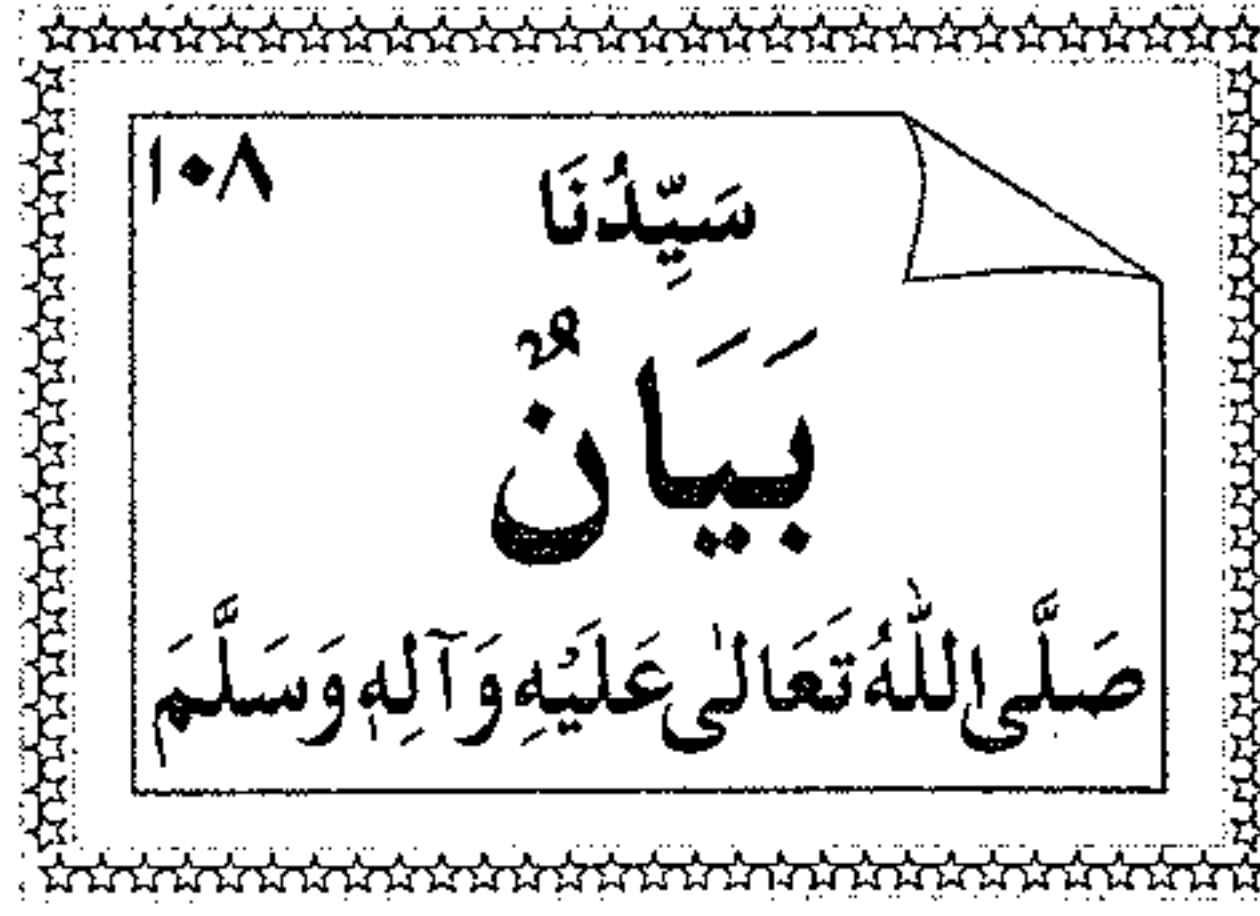 ١٠٨
سَيِّدُنَا
بَيَانٌ
صَلَّى اللّٰهُ تَعَالٰى عَلَيْهِ وَآلِهٖ وَسَلَّمَ